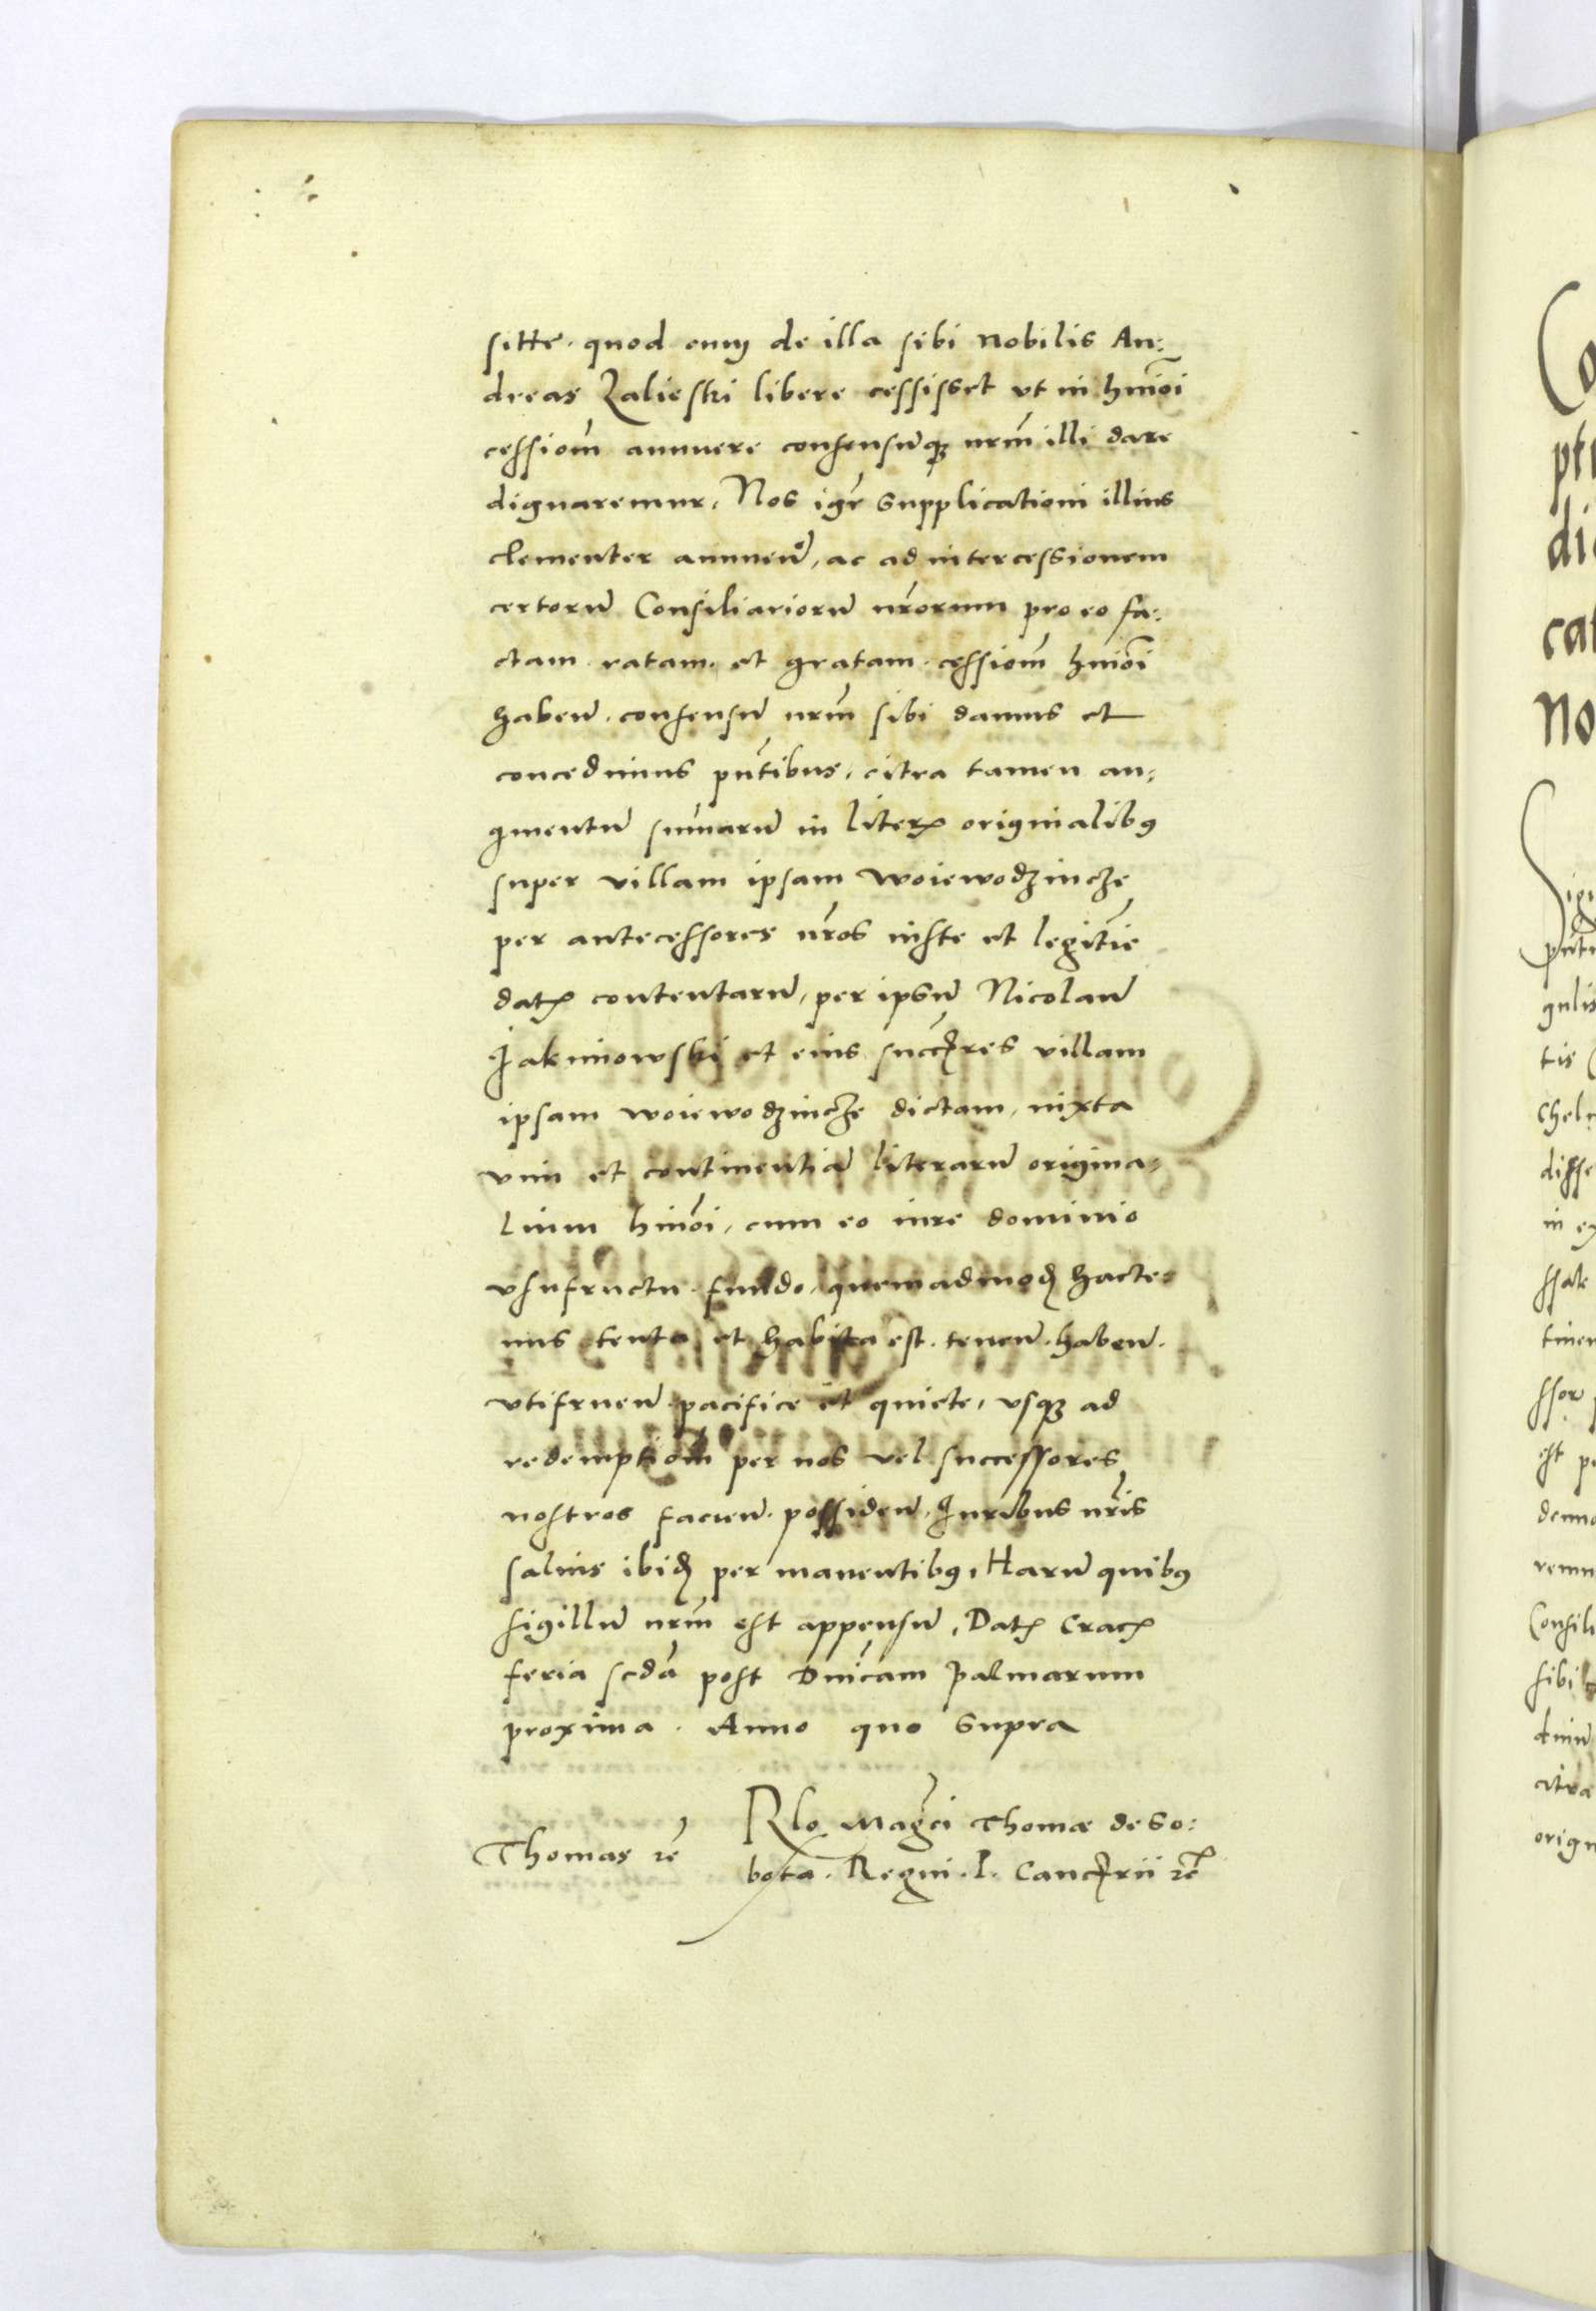 sitae. quod cum de illa sibi nobilis An:
dreas Zalieski libere cessisset vt in hmōi
cessiom̄ annuere consensūq; nrm̄ illi dare
dignaremur. Nos igr̄ supplicationi illius
clementer annuen̄, ac ad intercessionem
certorū Consiliariorū nr̄orum pro eo fa:
ctam ratam. et gratam. cessiom̄ hmōi
haben̄. consensū nrm̄ sibi damus et
concedimus pn̄tibus. citra tamen au:
gmentū sum̄arū in literꝭ originalibꝰ
super villam ipsam woiewodzincze
per antecessores nr̄os iuste et legitīe
datꝭ contentarū, per ipsū Nicolaū
Jakimowski et eius succr̄es villam
ipsam woiewodzincze dictam, iuxta
vim et continentiā literarū origina:
lium hmōi, cum eo iure dominio
vsufructu. fundo. quemadmoḍ hacte:
nus tenta et habita est. tenen̄. haben̄.
vtifruen̄. pacifice et quiete, vsq; ad
redemptiom̄ per nos vel successores
nostros facien̄. possiden̄. Juribus nr̄is
saluis ibiḍ per manentibꝰ, Harū quibꝰ
sigillū nrm̄ est appensū. Datꝭ Cracꝭ
feria scdā post Dnīcam Palmarum
proxima. Anno quo supra
Rlo Magci Thomae de So:
bota. Regni. P. Cancrii rc̄
Thomas rc̄